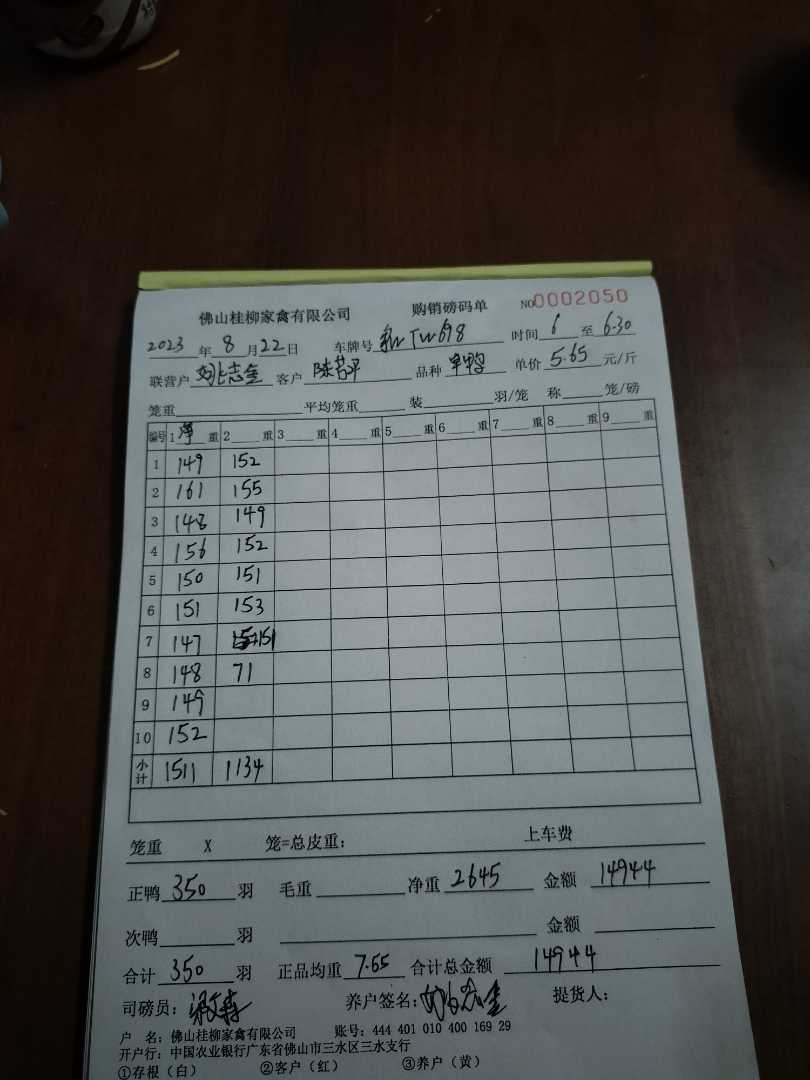 佛山桂柳家禽有限公司 购销磅码单 NO0002050
2023年8月22日 车牌号 TW698 时间6至6.30
联营户 客户 品种 单价5.65元/斤
笼重 平均笼重 装 羽/笼 称 笼/磅
编号 1净重 2重 3重 4重 5重 6重 7重 8重 9重
1 149 152
2 161 155
3 148 149
4 156 152
5 150 151
6 151 153
7 147 151
8 148 71
9 149
10 152
小计 1511 1134
笼重 X 笼=总皮重: 上车费
正鸭350羽 毛重 净重2645 金额14944
次鸭 羽 金额
合计350羽 正品均重7.55 合计总金额14944
司磅员: 养户签名: 提货人:
户 名: 佛山桂柳家禽有限公司 账号: 444 401 010 400 169 29
开户行: 中国农业银行广东省佛山市三水区三水支行
①存根(白) ②客户(红) ③养户(黄)